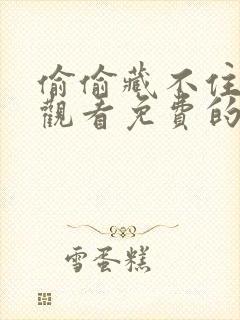 偷偷藏不住
觀看免費的
雪蛋糕